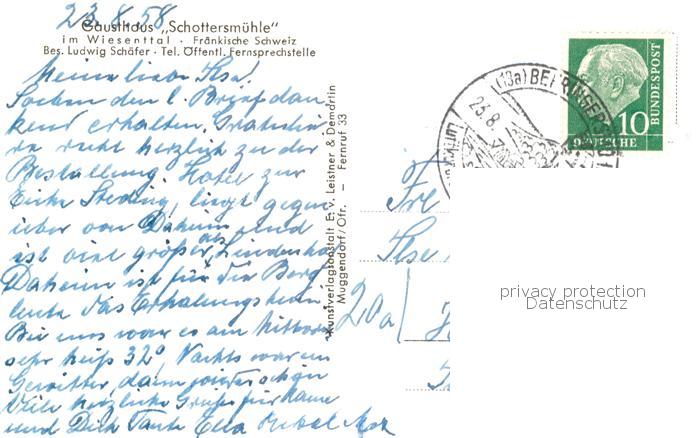 23.8.58
Gasthaus „Schottersmühle“
im Wiesenttal · Fränkische Schweiz
Bes. Ludwig Schäfer · Tel. Öffentl. Fernsprechstelle
Meine liebe Ilse!
Soeben den l. Brief dan
kend erhalten. Gratulie
re recht herzlich zu der
Bestallung Hotel zur
Eiche liegt gegen
über von Daheim und
ist viel größer als Lindenhof
Daheim ist für die Berg
leute das Erholungsheim.
Bei uns war es am Mittwoch
sehr heiß 32° Nachts war ein
Gewitter, dann wieder schön
Viele herzliche Grüße für Mama
und Dich Tante Ella Onkel Max
Kunstverlagsanstalt E. v. Leistner & Demdrtin
Muggendorf/Ofr. — Fernruf 33
(13a) BEHRINGERS
23.8.
10
DEUTSCHE
BUNDESPOST
Frl
Ilse
20a
privacy protection
Datenschutz